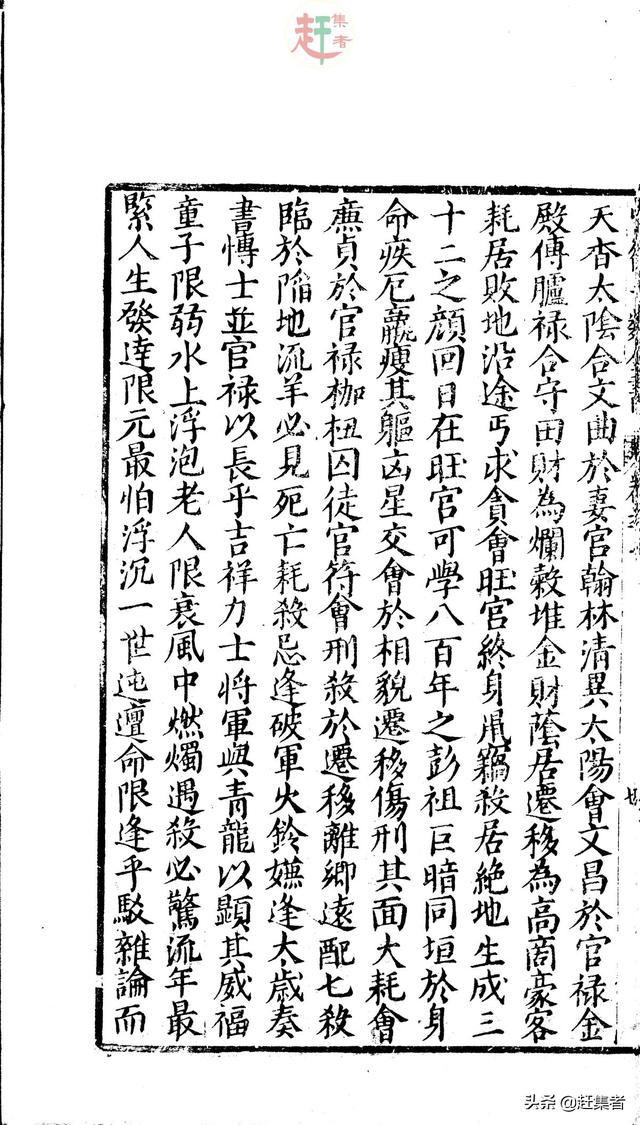 赶集者
天杳太陰合文曲於妻宮翰林清異太陽會文昌於官禄金
殿傳臚禄合守田財為爛穀堆金財蔭居遷移為高商豪客
耗居敗地沿途丐求貪會旺宮終身鼠竊殺居絶地生成三
十二之顏回日在旺宮可學八百年之彭祖巨暗同垣於身
命疾厄羸瘦其軀凶星交會於相貌遷移傷刑其面大耗會
廉貞於官禄枷杻囚徒官符會刑殺於遷移離鄉遠配七殺
臨於陷地流羊必見死亡耗殺忌逢破軍火鈴嫌逢太歲奏
書博士並官禄以長乎吉祥力士將軍與青龍以顯其威福
童子限弱水上浮泡老人限衰風中燃燭遇殺必驚流年最
緊人生發達限元最怕浮沉一世迍邅命限逢乎駁雜論而
头条 @赶集者